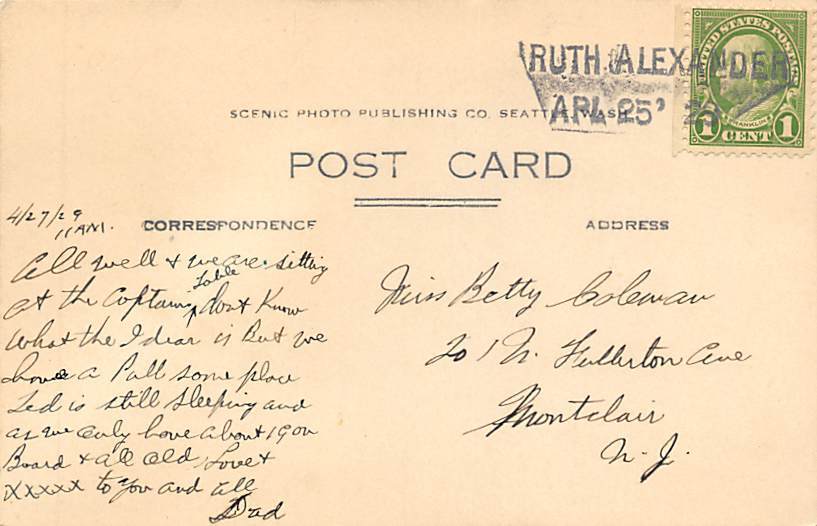 RUTH ALEXANDER
APL 25' 2
UNITED STATES POSTAGE
FRANKLIN
1 CENT 1
SCENIC PHOTO PUBLISHING CO. SEATTLE, WASH.
POST CARD
CORRESPONDENCE
ADDRESS
4/27/29
11 AM.
All well & we are sitting
at the Captains table dont Know
What the Idear is But we
have a Pull some place
Ted is still sleeping and
as we only have about 19 on
Board & all old, Love &
xxxxx to you and all
Dad
Miss Betty Coleman
20 N. Fullerton Ave
Montclair
N. J.